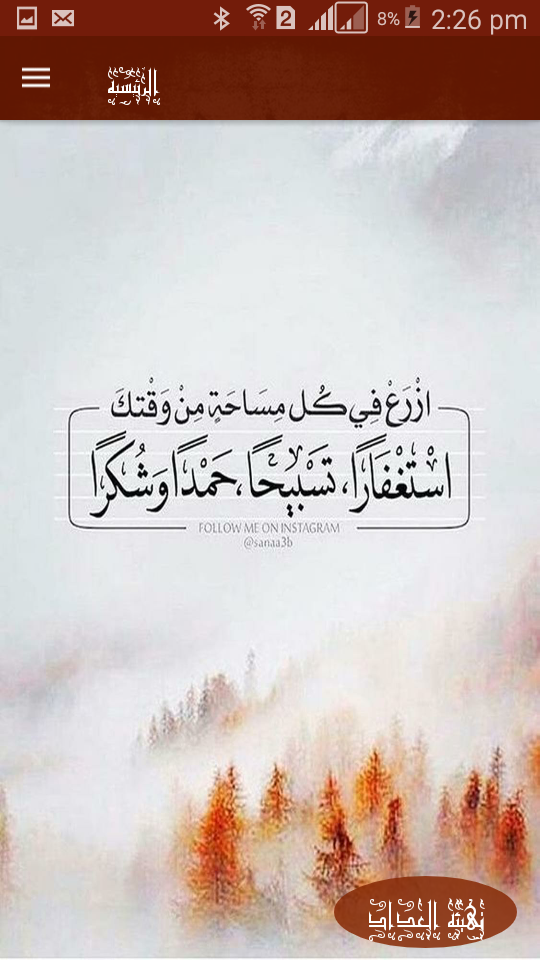 2 8% 2:26 pm
الرئيسيه
ازْرَعْ فِي كُل مِسَاحَةٍ مِنْ وَقْتكَ
اسْتَغْفَارًا، تَسْبِيحًا، حَمْدًا وَشُكرًا
FOLLOW ME ON INSTAGRAM
@sanaa3b
تهيئة العداد